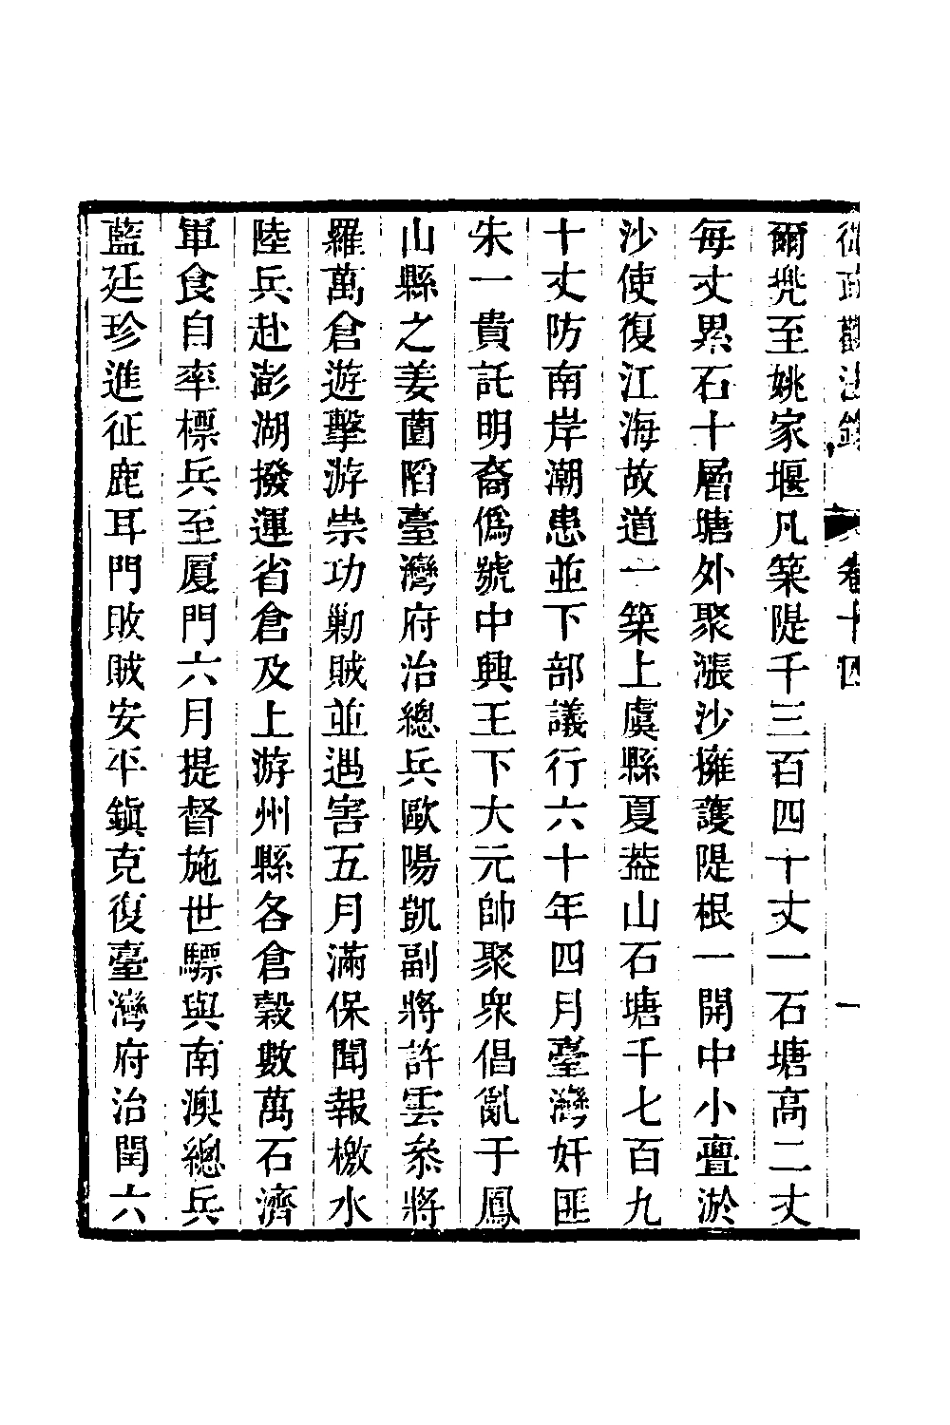 從政觀法錄 卷十四 一
爾兠至姚家堰凡築隄千三百四十丈一石塘高二丈
每丈累石十層塘外聚漲沙擁護隄根一開中小亹淤
沙使復江海故道一築上虞縣夏葢山石塘千七百九
十丈防南岸潮患並下部議行六十年四月臺灣奸匪
朱一貴託明裔僞號中興王下大元帥聚衆倡亂于鳳
山縣之姜園陷臺灣府治總兵歐陽凱副將許雲叅將
羅萬倉遊擊游崇功勦賊並遇害五月滿保聞報檄水
陸兵赴澎湖撥運省倉及上游州縣各倉穀數萬石濟
軍食自率標兵至厦門六月提督施世驃與南澳總兵
藍廷珍進征鹿耳門敗賊安平鎭克復臺灣府治閏六